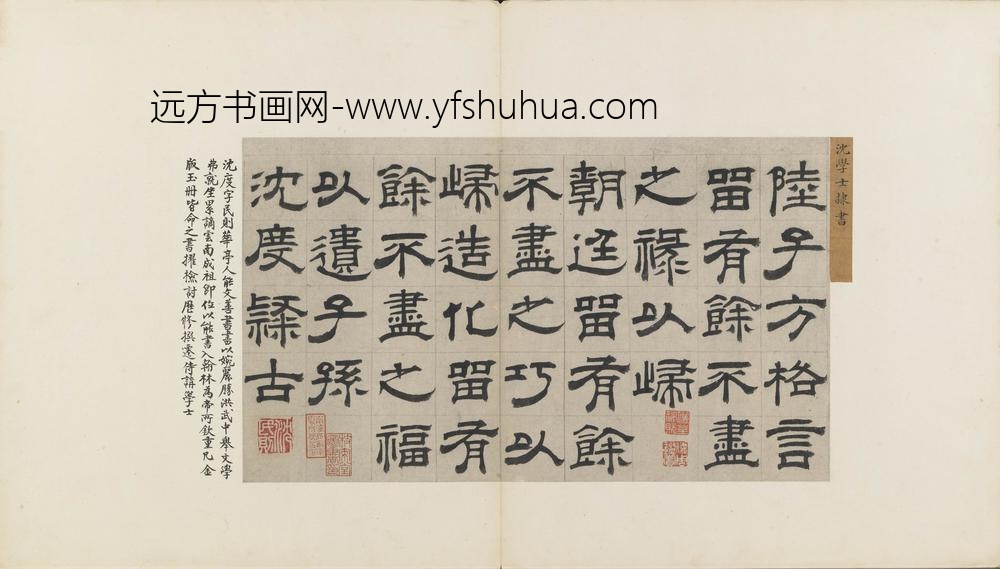 远方书画网-www.yfshuhua.com
沈學士隸書
陸子方格言
留有餘不盡
之祿以歸
朝廷留有餘
不盡之巧以
歸造化留有
餘不盡之福
以遺子孫
沈度隸古
沈度字民則華亭人能文善書書以婉麗勝洪武中舉文學
弗就坐累謫雲南成祖即位以能書入翰林為帝所欽重凡金
版玉冊皆命之書擢檢討歷修撰遷侍講學士